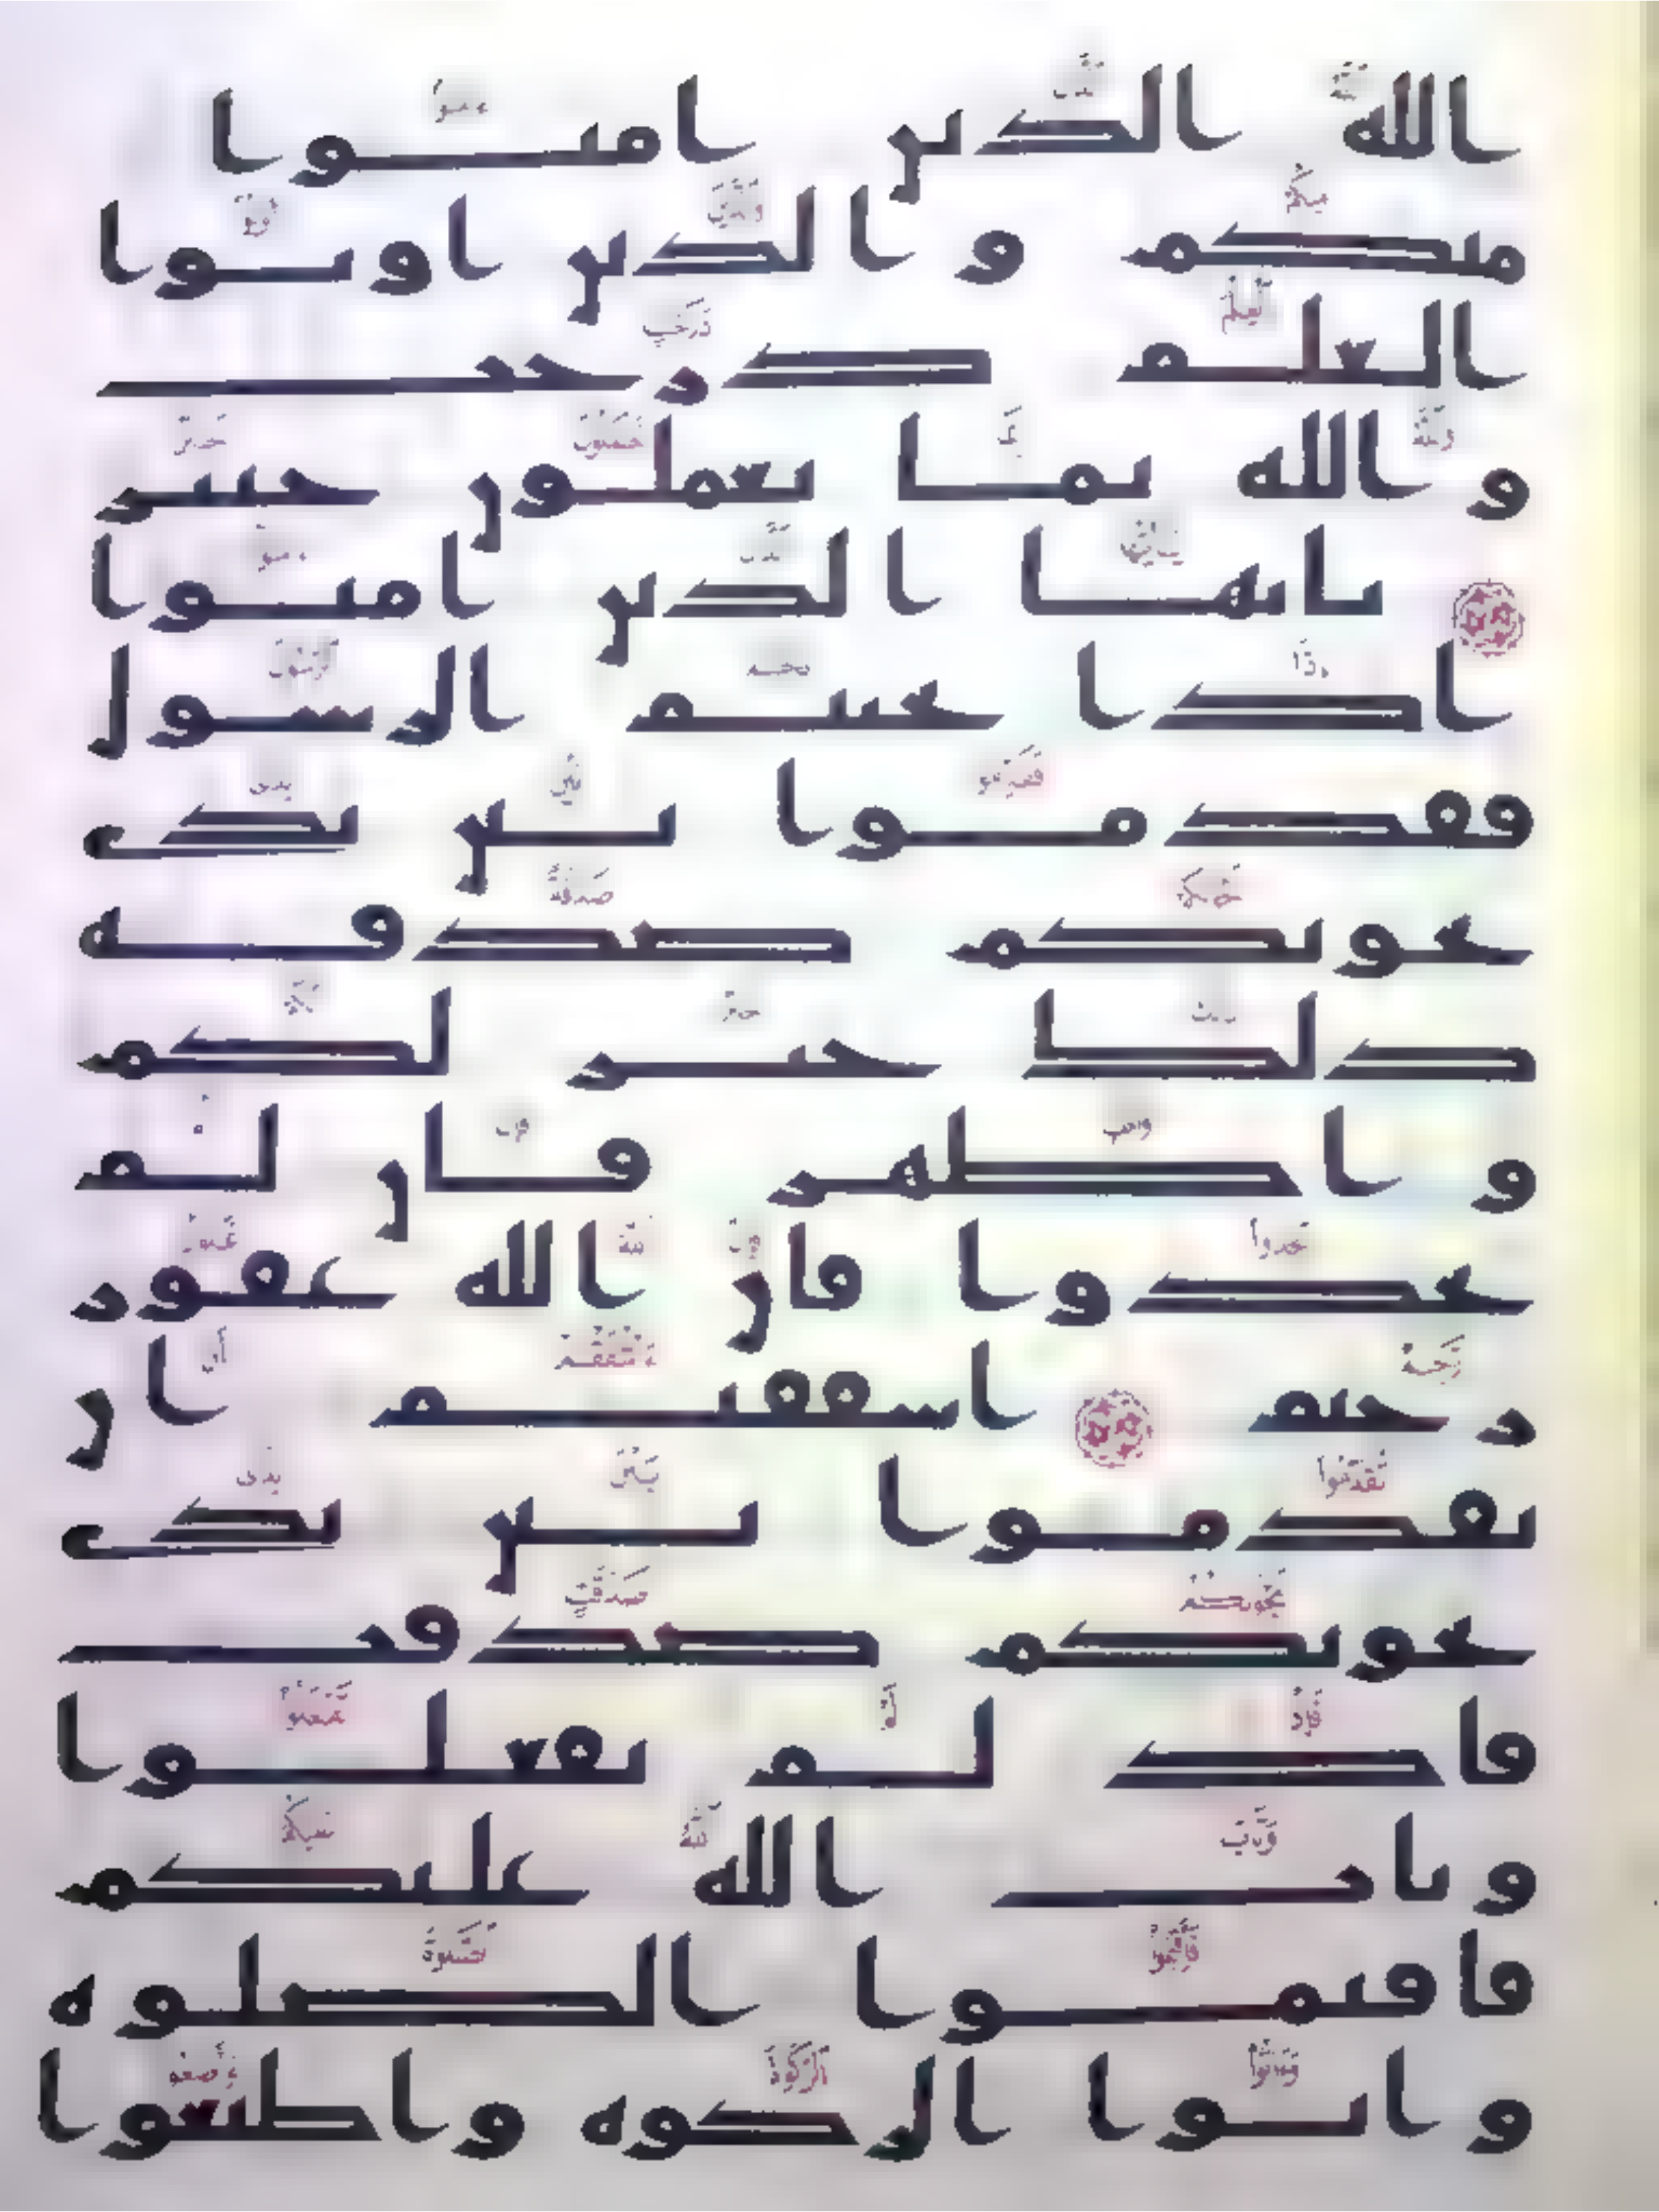 الله الذين امنوا
منكم والذين اوتوا
العلم درجت
والله بما تعملون خبير
يايها الذين امنوا
اذا نجيتم الرسول
فقدموا بين يدي
نجويكم صدقه
ذلك خير لكم
واطهر فان لم
تجدوا فان الله غفور
رحيم اشفقتم ان
تقدموا بين يدي
نجويكم صدقت
فاذ لم تفعلوا
وتاب الله عليكم
فاقيموا الصلوه
واتوا الزكوه واطيعوا